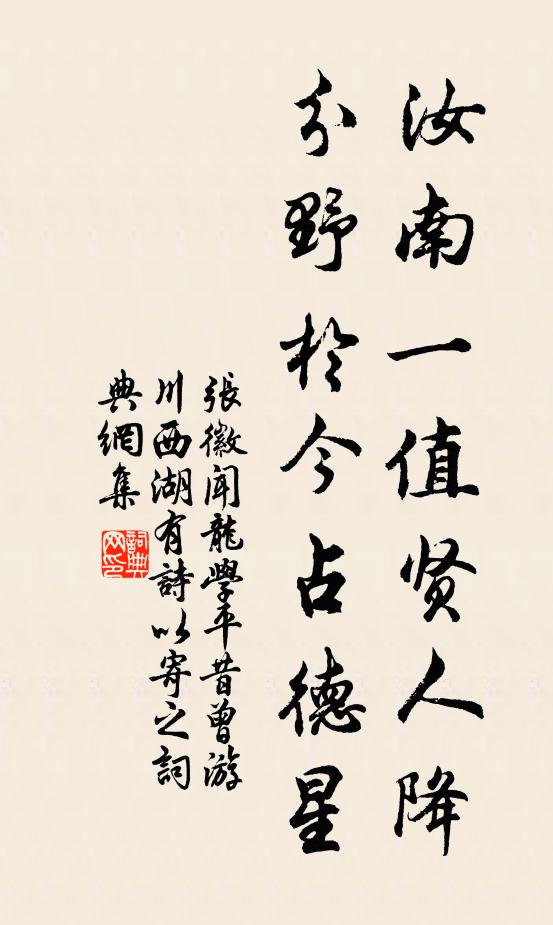 汝南一值贤人降
分野於今占德星
張徽聞龍學平昔曾游
川西湖有詩以寄之詞
典網集
詞典网印